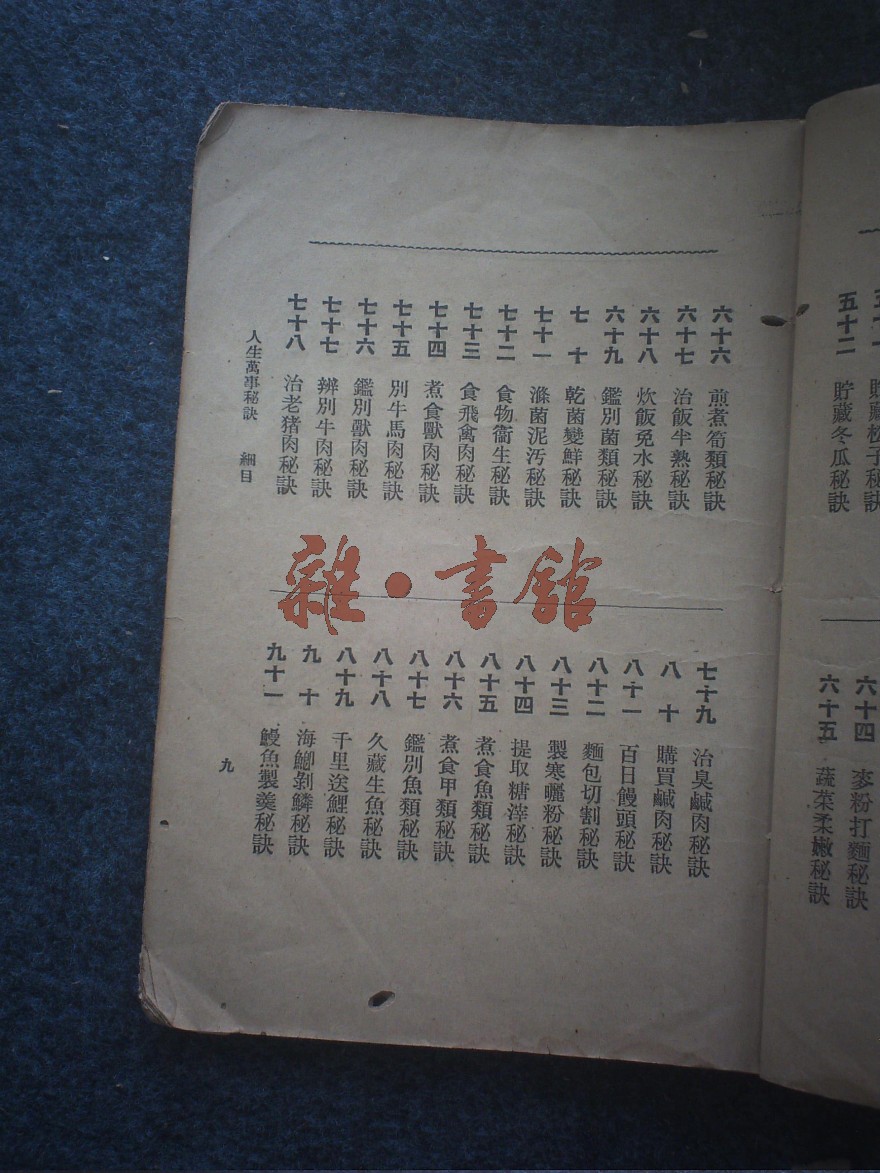 五十二 貯藏冬瓜秘訣
六十四 麥粉打麵秘訣
六十五 蔬菜柔嫩秘訣
六十六 煎煮筍類秘訣
六十七 治飯半熟秘訣
六十八 炊飯免水秘訣
六十九 鑑別菌類秘訣
七十 乾菌變鮮秘訣
七十一 滌菌泥污秘訣
七十二 食物衞生秘訣
七十三 食飛禽肉秘訣
七十四 煮食獸肉秘訣
七十五 別牛馬肉秘訣
七十六 鑑別獸肉秘訣
七十七 辨別牛肉秘訣
七十八 治老猪肉秘訣
七十九 治臭鹹肉秘訣
八十 購買鹹肉秘訣
八十一 百日饅頭秘訣
八十二 麵包切割秘訣
八十三 製寒曬粉秘訣
八十四 提取糖滓秘訣
八十五 煮食魚類秘訣
八十六 煮食甲類秘訣
八十七 鑑別魚類秘訣
八十八 久藏生魚秘訣
八十九 千里送鯉秘訣
九十 海鯽剝鱗秘訣
九十一 鰻魚製羹秘訣
人生萬事秘訣 細目
九
雜·書館